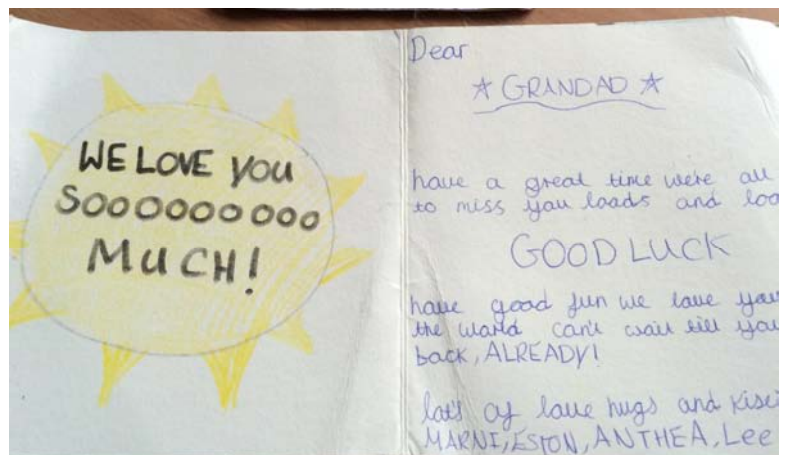 WE LOVE YOU
SOOOOOOOOO
MUCH!
Dear
☆ GRANDAD ☆
have a great time we're all
to miss you loads and loa
GOOD LUCK
have good fun we love you
the world can't wait till you
back, ALREADY!
lat's of love hugs and kise
MARNI, ESTON, ANTHEA, Lee